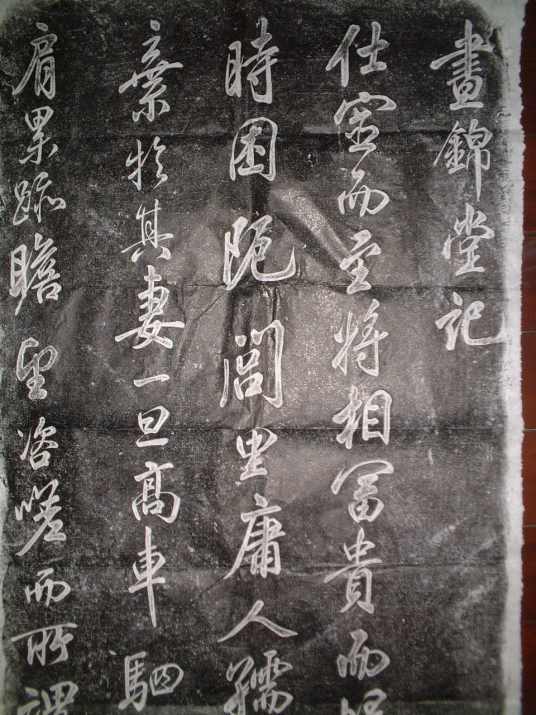 晝錦堂記
仕宦而至將相冨貴而
時困阨閭里庸人孺
棄於其妻一旦髙車駟
肩累跡瞻望咨嗟而所謂